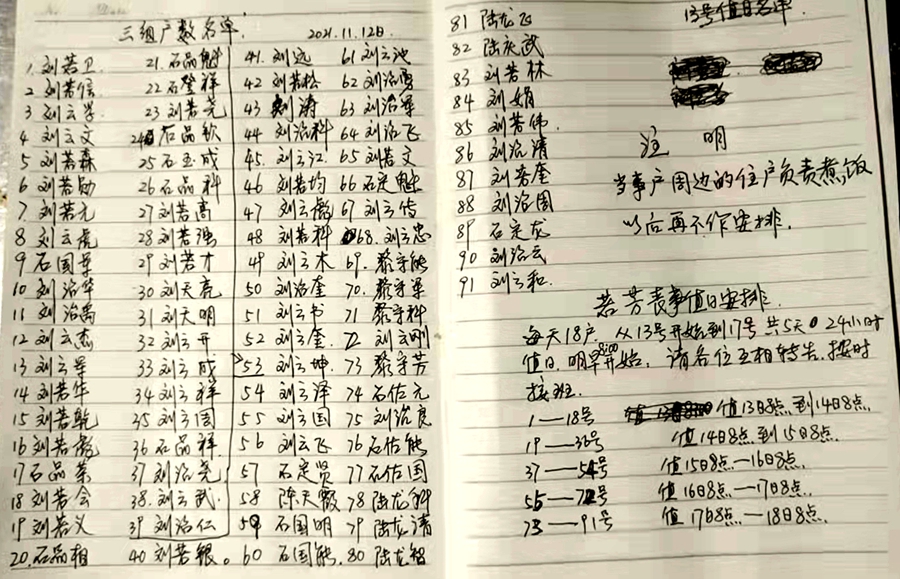 三组户数名单. 2021.11.12日.
1 刘若卫 21. 石品魁 41. 刘远 61 刘云池
2 刘若信 22 石登祥 42 刘若松 62 刘治勇
3 刘云学 23 刘若尧 43 刘涛 63 刘治军
4 刘云文 24 石品钦 44 刘治科 64 刘治飞
5 刘若森 25 石玉成 45. 刘云江 65 刘若文
6 刘若勋 26 石品科 46 刘若均 66 石定魁
7 刘若元 27 刘若高 47 刘云彪 67 刘云传
8 刘云虎 28 刘若强 48 刘若科 68. 刘云忠
9 石国军 29 刘若才 49 刘云木 69. 黎守能
10 刘治华 30 刘天亮 50 刘治奎 70. 黎守军
11 刘治禹 31 刘天明 51 刘云书 71 黎守科
12 刘云杰 32 刘云开 52 刘云奎. 72 刘云刚
13 刘云军 33 刘云成 53 刘云坤 73 黎守芳
14 刘若华 34 刘云祥 54 刘云泽 74 石佐元
15 刘若乾 35 刘云国 55 刘云国 75 刘治良
16 刘若彪 36 石品祥 56 刘云飞 76 石佐能
17 石品荣 37 刘治尧 57 石定贤 77 石佐国
18 刘若会 38. 刘云武 58 陈天霞 78 陆龙科
19 刘若义 39 刘治仁 59 石国明 79 陆龙清
20. 石品相 40 刘若银。 60 石国能. 80 陆龙智
81 陆龙飞 13号值日名单.
82 陆庆武
83 刘若林
84 刘娟
85 刘若伟
86 刘治清 注 明
87 刘若奎 当事户周边的住户负责煮饭
88 刘治国 以后再不作安排.
89 石定龙
90 刘治云
91 刘云和.
若芳丧事值日安排.
每天18户. 从13号开始到17号 共5天 24小时
值日. 明早8:00开始. 请各位互相转告. 按时
接班.
1——18号 值13日8点到14日8点.
19——36号 值14日8点到15日8点.
37——54号 值15日8点—16日8点.
55——72号 值16日8点—17日8点.
73——91号 值17日8点—18日8点.